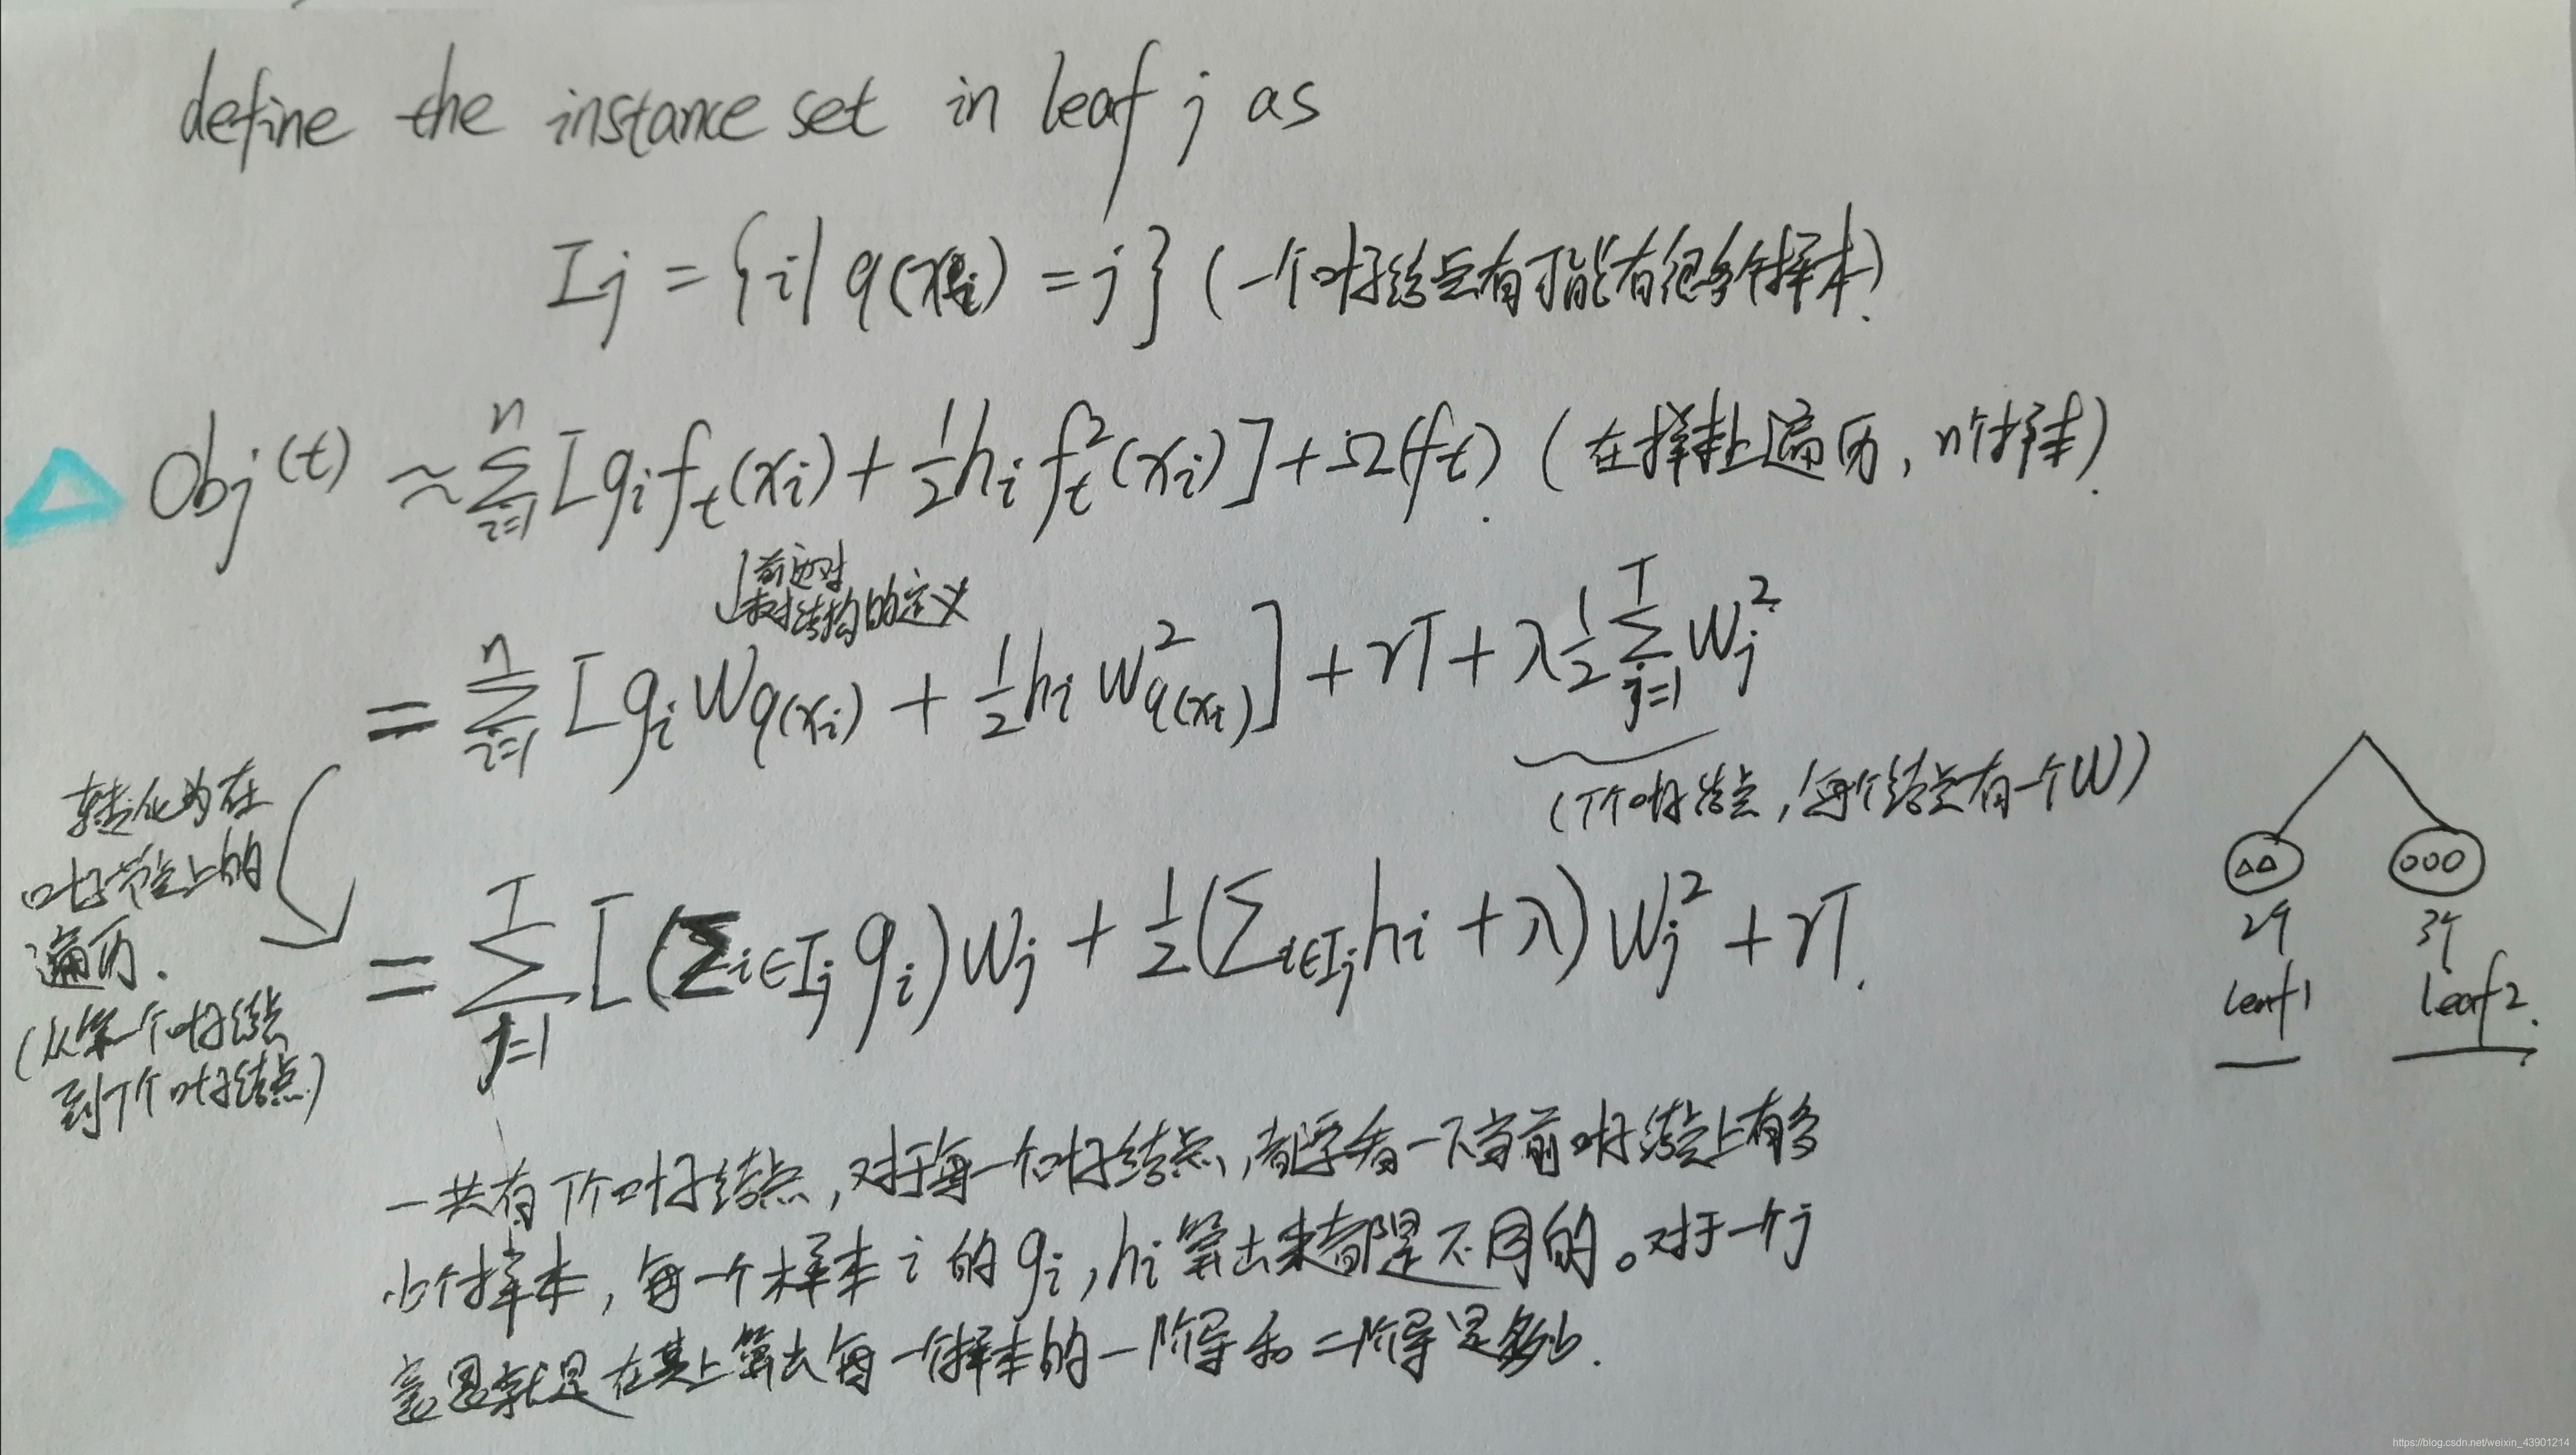 define the instance set in leaf j as
Ij = {i| q(xi) = j} (一个叶子结点有可能有很多个样本).
Obj(t) ≈ Σ_{i=1}^{n} [gi f_t(xi) + 1/2 hi f_t^2(xi)] + Ω(ft). (在样本上遍历, n个样本).
↓前边对
树结构的定义
= Σ_{i=1}^{n} [gi W_{q(xi)} + 1/2 hi W^2_{q(xi)}] + γT + λ 1/2 Σ_{j=1}^{T} Wj^2
(T个叶子结点, 每个结点有一个W)
转化为在
叶子节点上的
遍历.
(从第一个叶子结点
到T个叶子结点)
= Σ_{j=1}^{T} [(Σ_{i∈Ij} gi) Wj + 1/2 (Σ_{i∈Ij} hi + λ) Wj^2 + γT.
△△
○○○
2个
3个
leaf1
leaf2.
一共有T个叶子结点, 对于每一个叶子结点, 都要看一下当前叶子结点上有多
少个样本, 每一个样本 i 的 gi, hi 算出来都是不同的。对于一个j
意思就是在其上算出每一个样本的一阶导和二阶导是多少.
https://blog.csdn.net/weixin_43901214